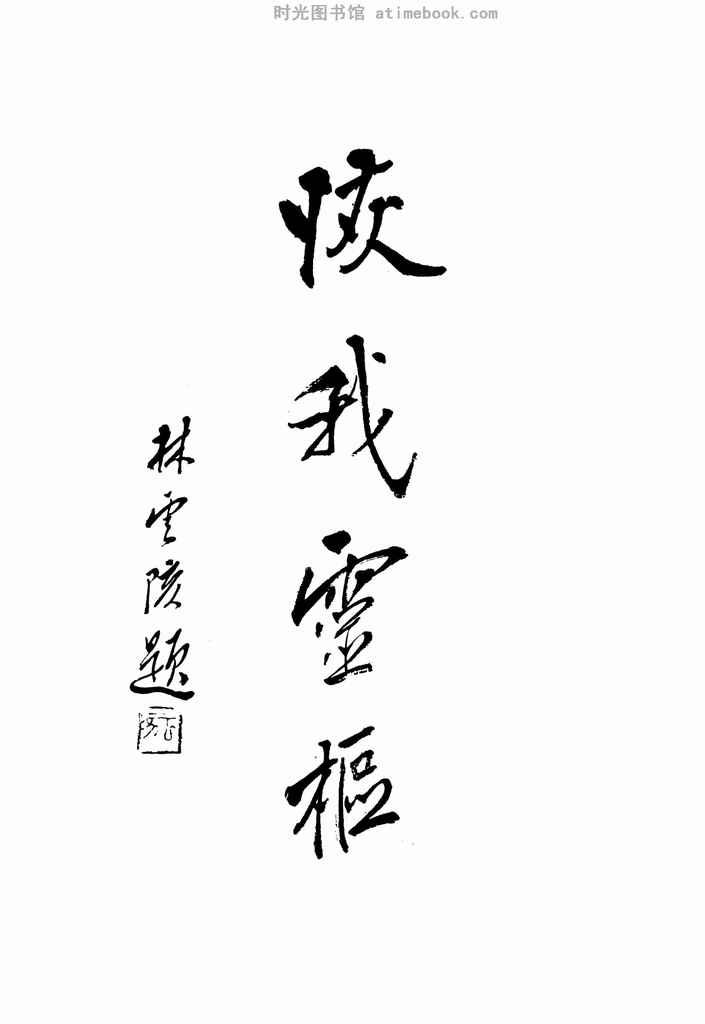 时光图书馆 atimebook.com
恢我靈樞
林雲陔題